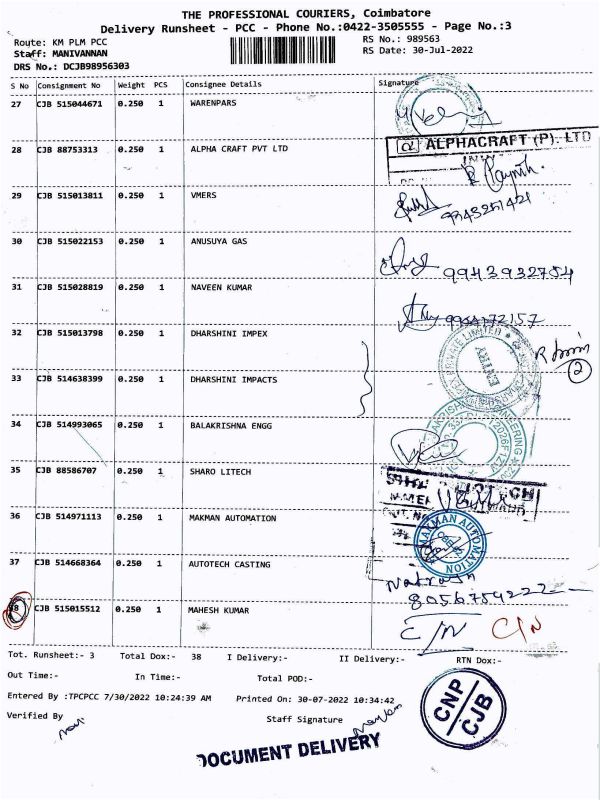 THE PROFESSIONAL COURIERS, Coimbatore
Delivery Runsheet - PCC - Phone No.:0422-3505555 - Page No.:3
Route: KM PLM PCC
RS No.: 989563
Staff: MANIVANNAN
RS Date: 30-Jul-2022
DRS No.: DCJB98956303
S No Consignment No Weight PCS Consignee Details Signature
27 CJB 515044671 0.250 1 WARENPARS
28 CJB 88753313 0.250 1 ALPHA CRAFT PVT LTD
ALPHACRAFT (P). LTD
29 CJB 515013811 0.250 1 VMERS
9343251421
30 CJB 515022153 0.250 1 ANUSUYA GAS
9943932754
31 CJB 515028819 0.250 1 NAVEEN KUMAR
32 CJB 515013798 0.250 1 DHARSHINI IMPEX
ENTRY
2
33 CJB 514638399 0.250 1 DHARSHINI IMPACTS
34 CJB 514993065 0.250 1 BALAKRISHNA ENGG
35 CJB 88586707 0.250 1 SHARO LITECH
36 CJB 514971113 0.250 1 MAKMAN AUTOMATION
MAKMAN AUTOMATION
37 CJB 514668364 0.250 1 AUTOTECH CASTING
8056759222
38 CJB 515015512 0.250 1 MAHESH KUMAR
C/N C/N
Tot. Runsheet:- 3 Total Dox:- 38 I Delivery:- II Delivery:- RTN Dox:-
Out Time:- In Time:- Total POD:-
Entered By :TPCPCC 7/30/2022 10:24:39 AM Printed On: 30-07-2022 10:34:42
Verified By Staff Signature
CNP
CJB
DOCUMENT DELIVERY